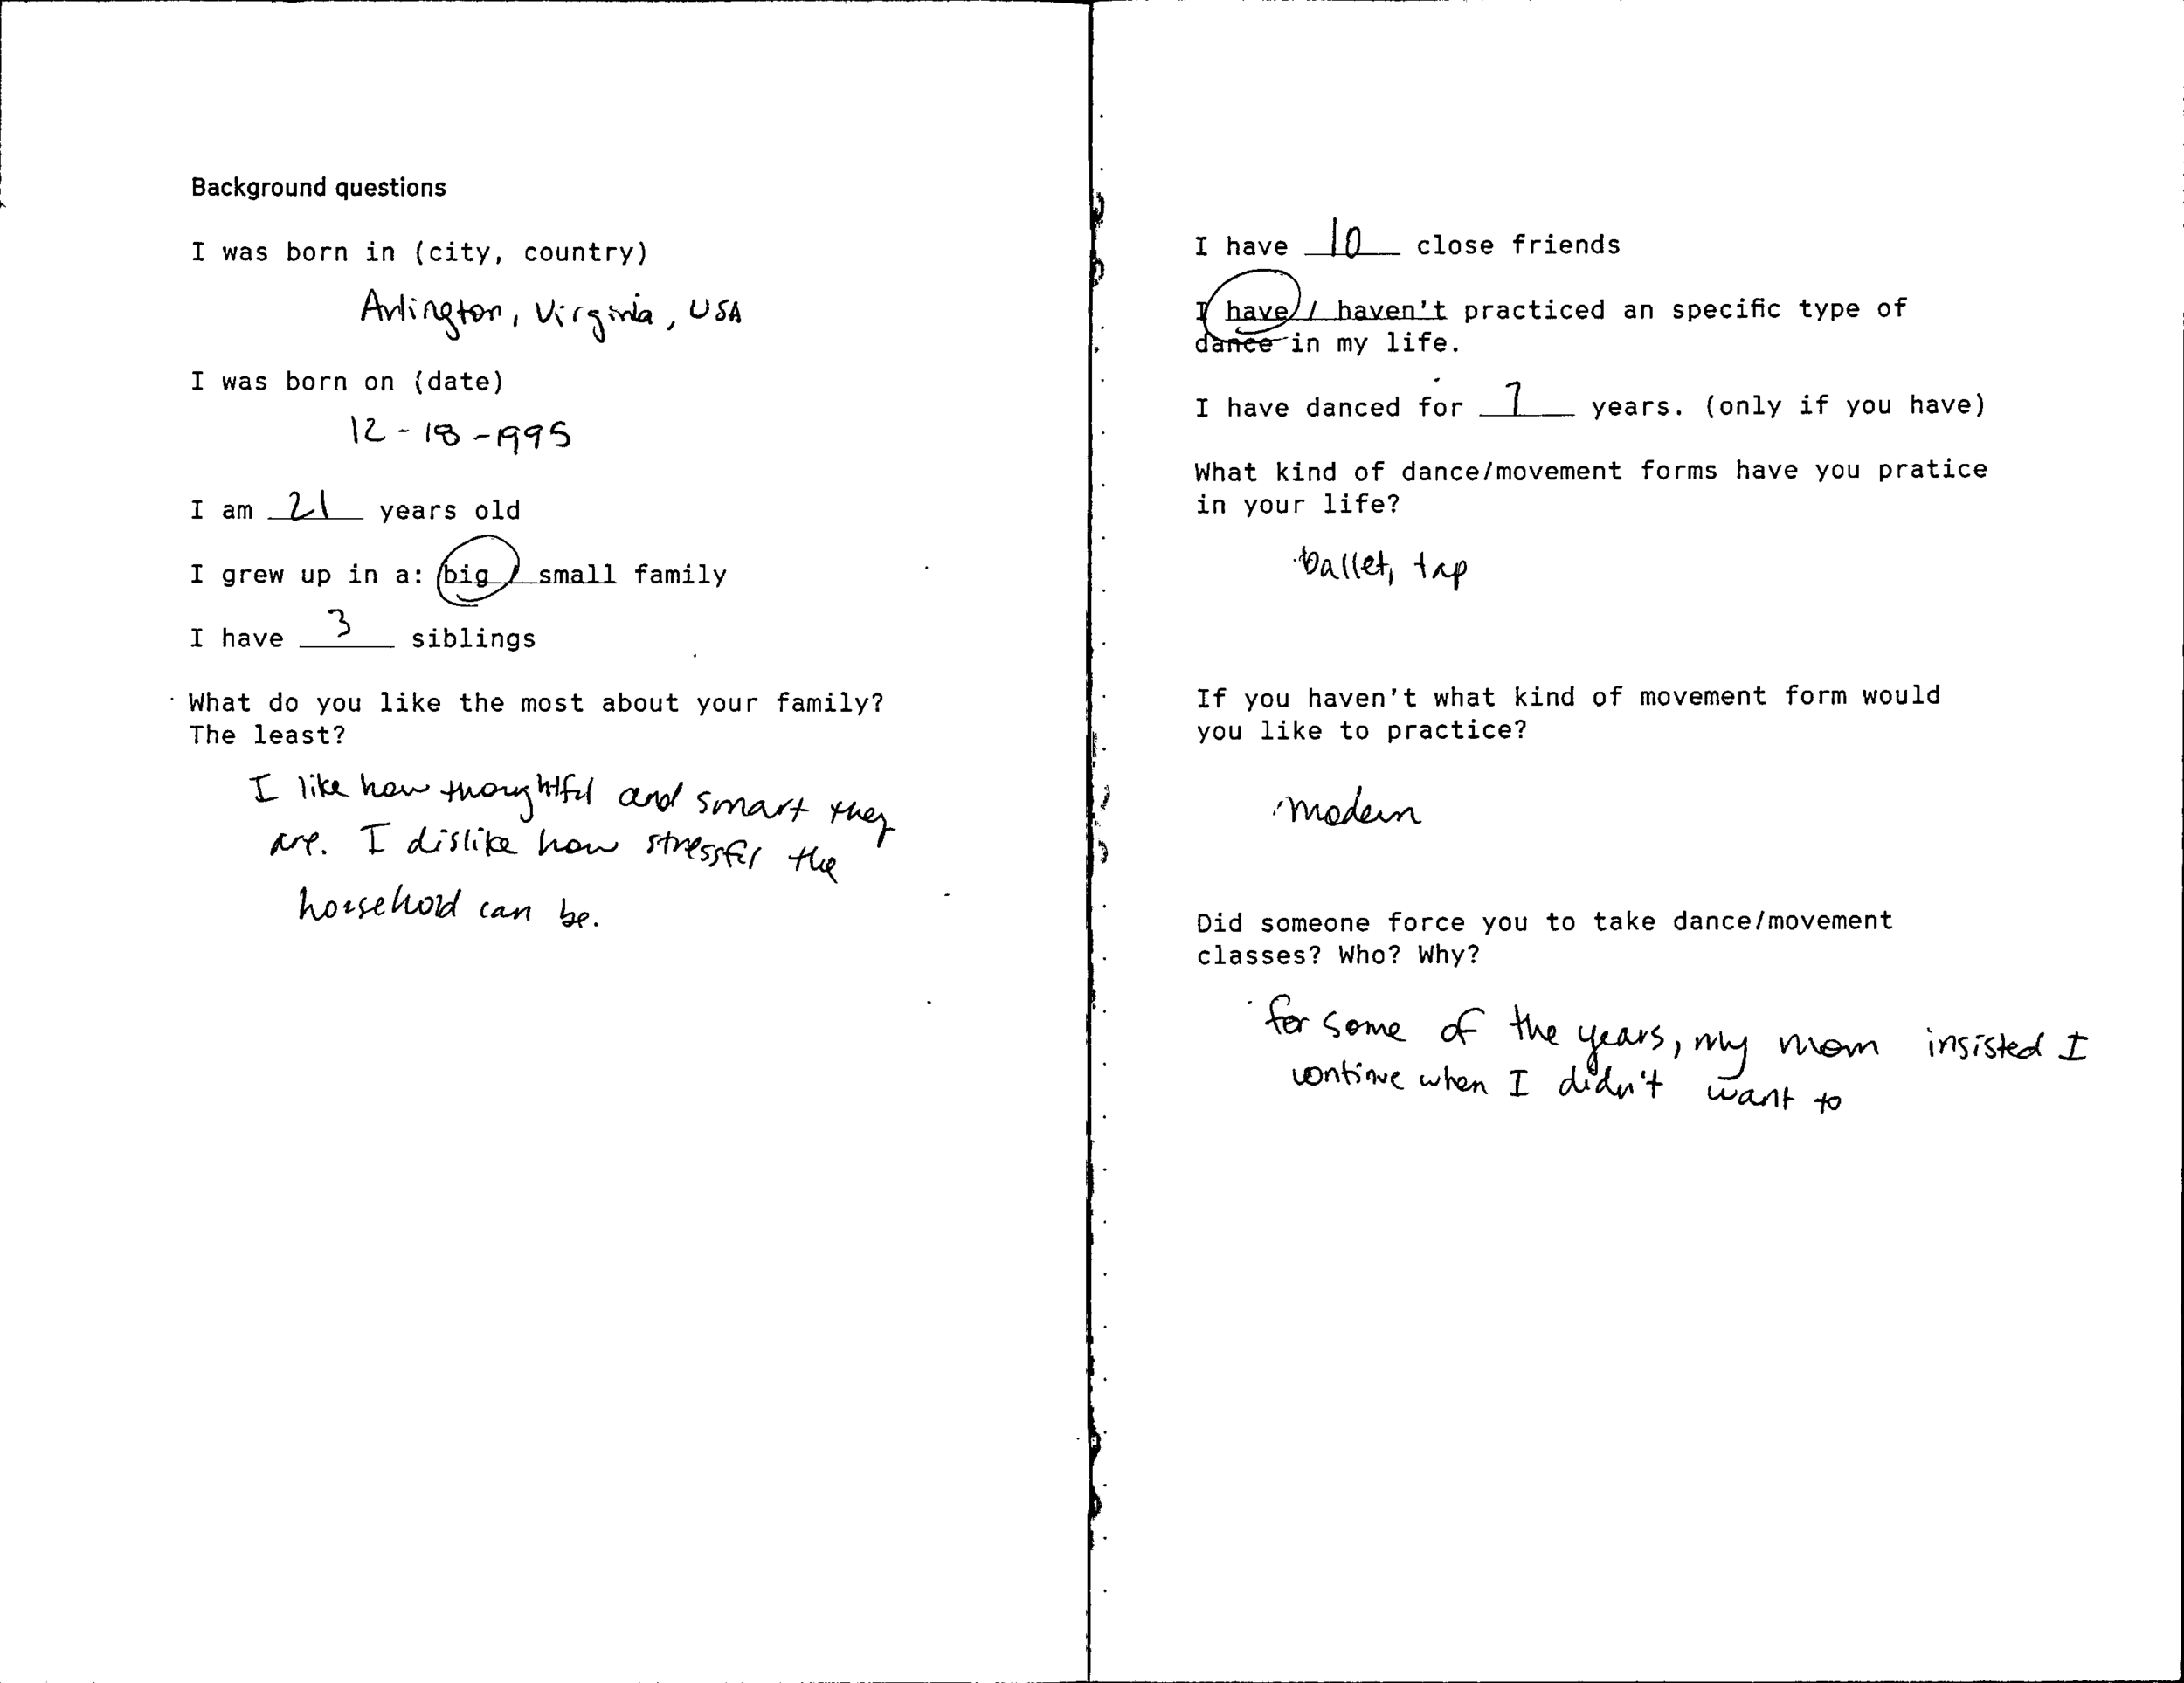 Background questions
I was born in (city, country)
Arlington, Virginia, USA
I was born on (date)
12-18-1995
I am 21 years old
I grew up in a: big / small family
I have 3 siblings
What do you like the most about your family?
The least?
I like how thoughtful and smart they
are. I dislike how stressful the
household can be.
I have 10 close friends
I have / haven't practiced an specific type of
dance in my life.
I have danced for 7 years. (only if you have)
What kind of dance/movement forms have you pratice
in your life?
ballet, tap
If you haven't what kind of movement form would
you like to practice?
modern
Did someone force you to take dance/movement
classes? Who? Why?
for some of the years, my mom insisted I
continue when I didn't want to